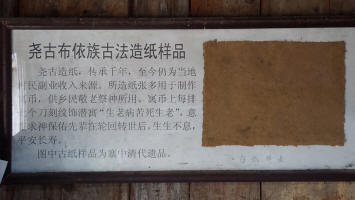 尧古布依族古法造纸样品
尧古造纸，传承千年，至今仍为当地
村民副业收入来源。所造纸张多用于制作
冥币，供乡民敬老祭神所用。冥币上每排
七个刀刻纹饰潜寓“生老病苦死生老”，意
祈求神保佑先辈在轮回转世后，生生不息，
平安长寿。
图中古纸样品为寨中清代遗品。